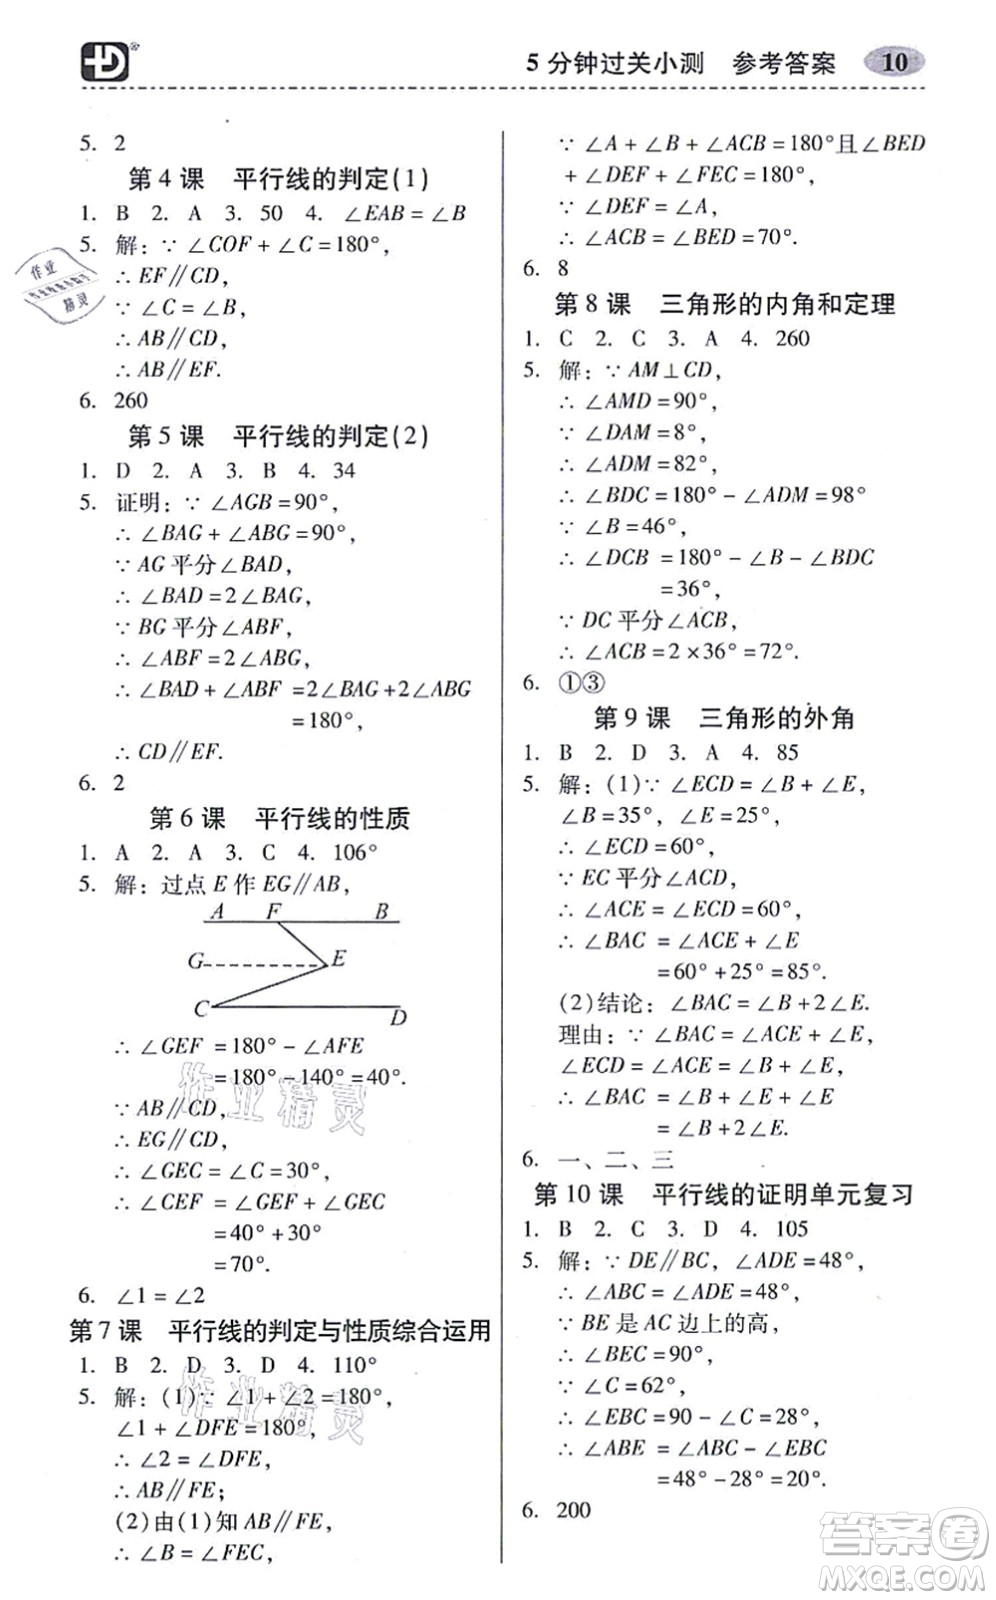 5分钟过关小测 参考答案 10
5. 2
第4课 平行线的判定(1)
1. B 2. A 3. 50 4. ∠EAB=∠B
5. 解:∵∠COF+∠C=180°,
∴EF∥CD,
∵∠C=∠B,
∴AB∥CD,
∴AB∥EF.
6. 260
第5课 平行线的判定(2)
1. D 2. A 3. B 4. 34
5. 证明:∵∠AGB=90°,
∴∠BAG+∠ABG=90°,
∵AG平分∠BAD,
∴∠BAD=2∠BAG,
∵BG平分∠ABF,
∴∠ABF=2∠ABG,
∴∠BAD+∠ABF=2∠BAG+2∠ABG
=180°,
∴CD∥EF.
6. 2
第6课 平行线的性质
1. A 2. A 3. C 4. 106°
5. 解:过点E作EG∥AB,
A F B
G E
C D
∴∠GEF=180°-∠AFE
=180°-140°=40°.
∵AB∥CD,
∴EG∥CD,
∴∠GEC=∠C=30°,
∴∠CEF=∠GEF+∠GEC
=40°+30°
=70°.
6. ∠1=∠2
第7课 平行线的判定与性质综合运用
1. B 2. D 3. D 4. 110°
5. 解:(1)∵∠1+∠2=180°,
∠1+∠DFE=180°,
∴∠2=∠DFE,
∴AB∥FE;
(2)由(1)知AB∥FE,
∴∠B=∠FEC,
∵∠A+∠B+∠ACB=180°且∠BED
+∠DEF+∠FEC=180°,
∵∠DEF=∠A,
∴∠ACB=∠BED=70°.
6. 8
第8课 三角形的内角和定理
1. C 2. C 3. A 4. 260
5. 解:∵AM⊥CD,
∴∠AMD=90°,
∵∠DAM=8°,
∴∠ADM=82°,
∴∠BDC=180°-∠ADM=98°
∵∠B=46°,
∴∠DCB=180°-∠B-∠BDC
=36°,
∵DC平分∠ACB,
∴∠ACB=2×36°=72°.
6. ①③
第9课 三角形的外角
1. B 2. D 3. A 4. 85
5. 解:(1)∵∠ECD=∠B+∠E,
∠B=35°,∠E=25°,
∴∠ECD=60°,
∵EC平分∠ACD,
∴∠ACE=∠ECD=60°,
∴∠BAC=∠ACE+∠E
=60°+25°=85°.
(2)结论:∠BAC=∠B+2∠E.
理由:∵∠BAC=∠ACE+∠E,
∠ECD=∠ACE=∠B+∠E,
∴∠BAC=∠B+∠E+∠E
=∠B+2∠E.
6. 一、二、三
第10课 平行线的证明单元复习
1. B 2. C 3. D 4. 105
5. 解:∵DE∥BC,∠ADE=48°,
∴∠ABC=∠ADE=48°,
∵BE是AC边上的高,
∴∠BEC=90°,
∵∠C=62°,
∴∠EBC=90-∠C=28°,
∴∠ABE=∠ABC-∠EBC
=48°-28°=20°.
6. 200
作业精灵
作业精灵
答案卷
MXQE.COM